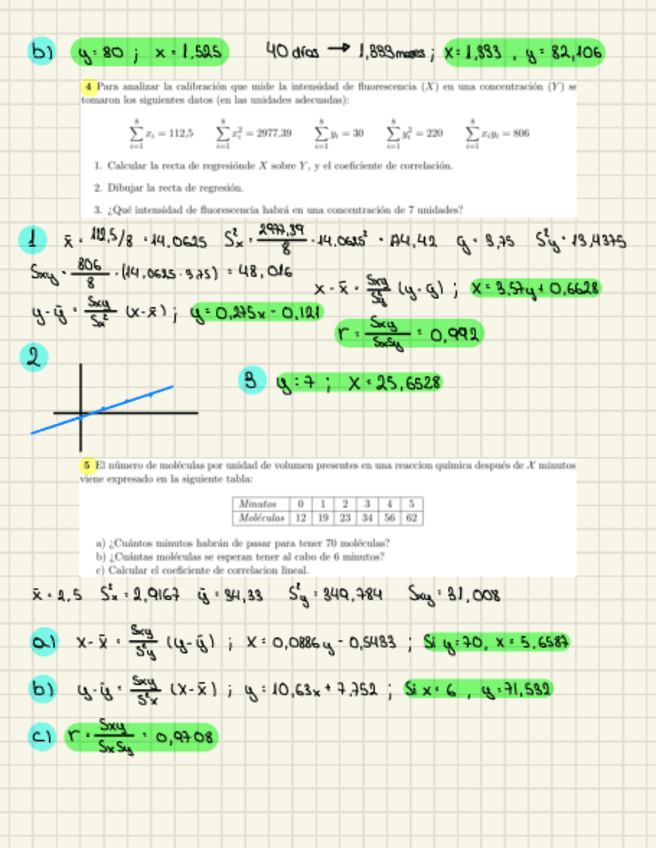 b) y = 80 ; x = 1,525 40 días → 1,333 meses ; x = 1,333 , y = 82,106
4 Para analizar la calibración que mide la intensidad de fluorescencia (X) en una concentración (Y) se
tomaron los siguientes datos (en las unidades adecuadas):
∑_{i=1}^{8} x_i = 112,5 ∑_{i=1}^{8} x_i² = 2977,39 ∑_{i=1}^{8} y_i = 30 ∑_{i=1}^{8} y_i² = 220 ∑_{i=1}^{8} x_i y_i = 806
1. Calcular la recta de regresiónde X sobre Y, y el coeficiente de correlación.
2. Dibujar la recta de regresión.
3. ¿Qué intensidad de fluorescencia habrá en una concentración de 7 unidades?
1 x̄ = 112,5/8 = 14,0625 S²x = 2977,39/8 - 14,0625² = 174,42 ȳ = 3,75 S²y = 13,4375
Sxy = 806/8 - (14,0625 · 3,75) = 48,016
x - x̄ = Sxy/S²y (y - ȳ) ; x = 3,57y + 0,6628
y - ȳ = Sxy/Sx² (x - x̄) ; y = 0,275x - 0,121
r = Sxy/SxSy = 0,992
2
3 y = 7 ; x = 25,6528
5 El número de moléculas por unidad de volumen presentes en una reaccion química después de X minutos
viene expresado en la siguiente tabla:
Minutos 0 1 2 3 4 5
Moléculas 12 19 23 34 56 62
a) ¿Cuántos minutos habrán de pasar para tener 70 moléculas?
b) ¿Cuántas moléculas se esperan tener al cabo de 6 minutos?
c) Calcular el coeficiente de correlacion lineal.
x̄ = 2,5 S²x = 2,9167 ȳ = 34,33 S²y = 349,784 Sxy = 31,008
a) x - x̄ = Sxy/S²y (y - ȳ) ; x = 0,0886y - 0,5433 ; Si y = 70, x = 5,6587
b) y - ȳ = Sxy/S²x (x - x̄) ; y = 10,63x + 7,752 ; Si x = 6 , y = 71,532
c) r = Sxy/SxSy = 0,9708